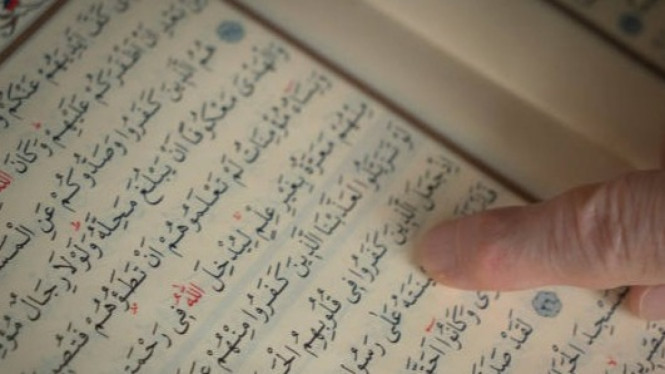 كَفَّ اَيْدِيَهُمْ عَنْكُمْ
بَعْدِ اَنْ اَظْفَرَكُمْ عَلَيْهِمْ وَكَانَ اللّٰهُ
هُمُ الَّذِينَ كَفَرُوا وَصَدُّوكُمْ عَنِ الْمَسْ
وَالْهَدْيَ مَعْكُوفًا اَنْ يَبْلُغَ مَحِلَّهُ وَلَوْلَا رِجَالٌ مُؤْ
وَنِسَاءٌ مُؤْمِنَاتٌ لَمْ تَعْلَمُوهُمْ اَنْ تَطَؤُهُمْ فَتُصِ
مِنْهُمْ مَعَرَّةٌ بِغَيْرِ عِلْمٍ لِيُدْخِلَ اللّٰهُ فِي رَحْمَ
لَوْ تَزَيَّلُوا لَعَذَّبْنَا الَّذِينَ كَفَرُوا مِنْهُمْ
اِذْ جَعَلَ الَّذِينَ كَفَرُوا فِي قُلُوبِهِمُ الْحَ
ينَتَهُ عَلٰى رَسُو
وَكَانُوا اَحَقَّ
لَقَدْ صَدَ
سْجِدَ الْحَ